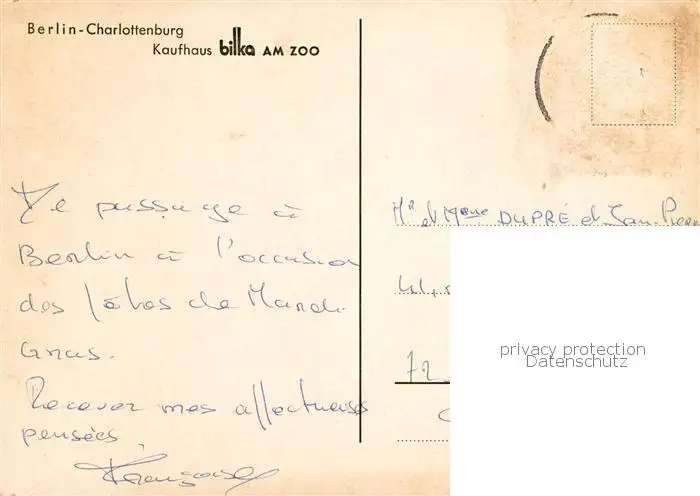 Berlin-Charlottenburg
Kaufhaus bilka AM ZOO
De passage à
Berlin à l'occasion
des fêtes de Mardi
Gras.
Recevez mes affectueuses
pensées,
Françoise
Mr et Mme DUPRÉ et Jean-Pierre
72
privacy protection
Datenschutz